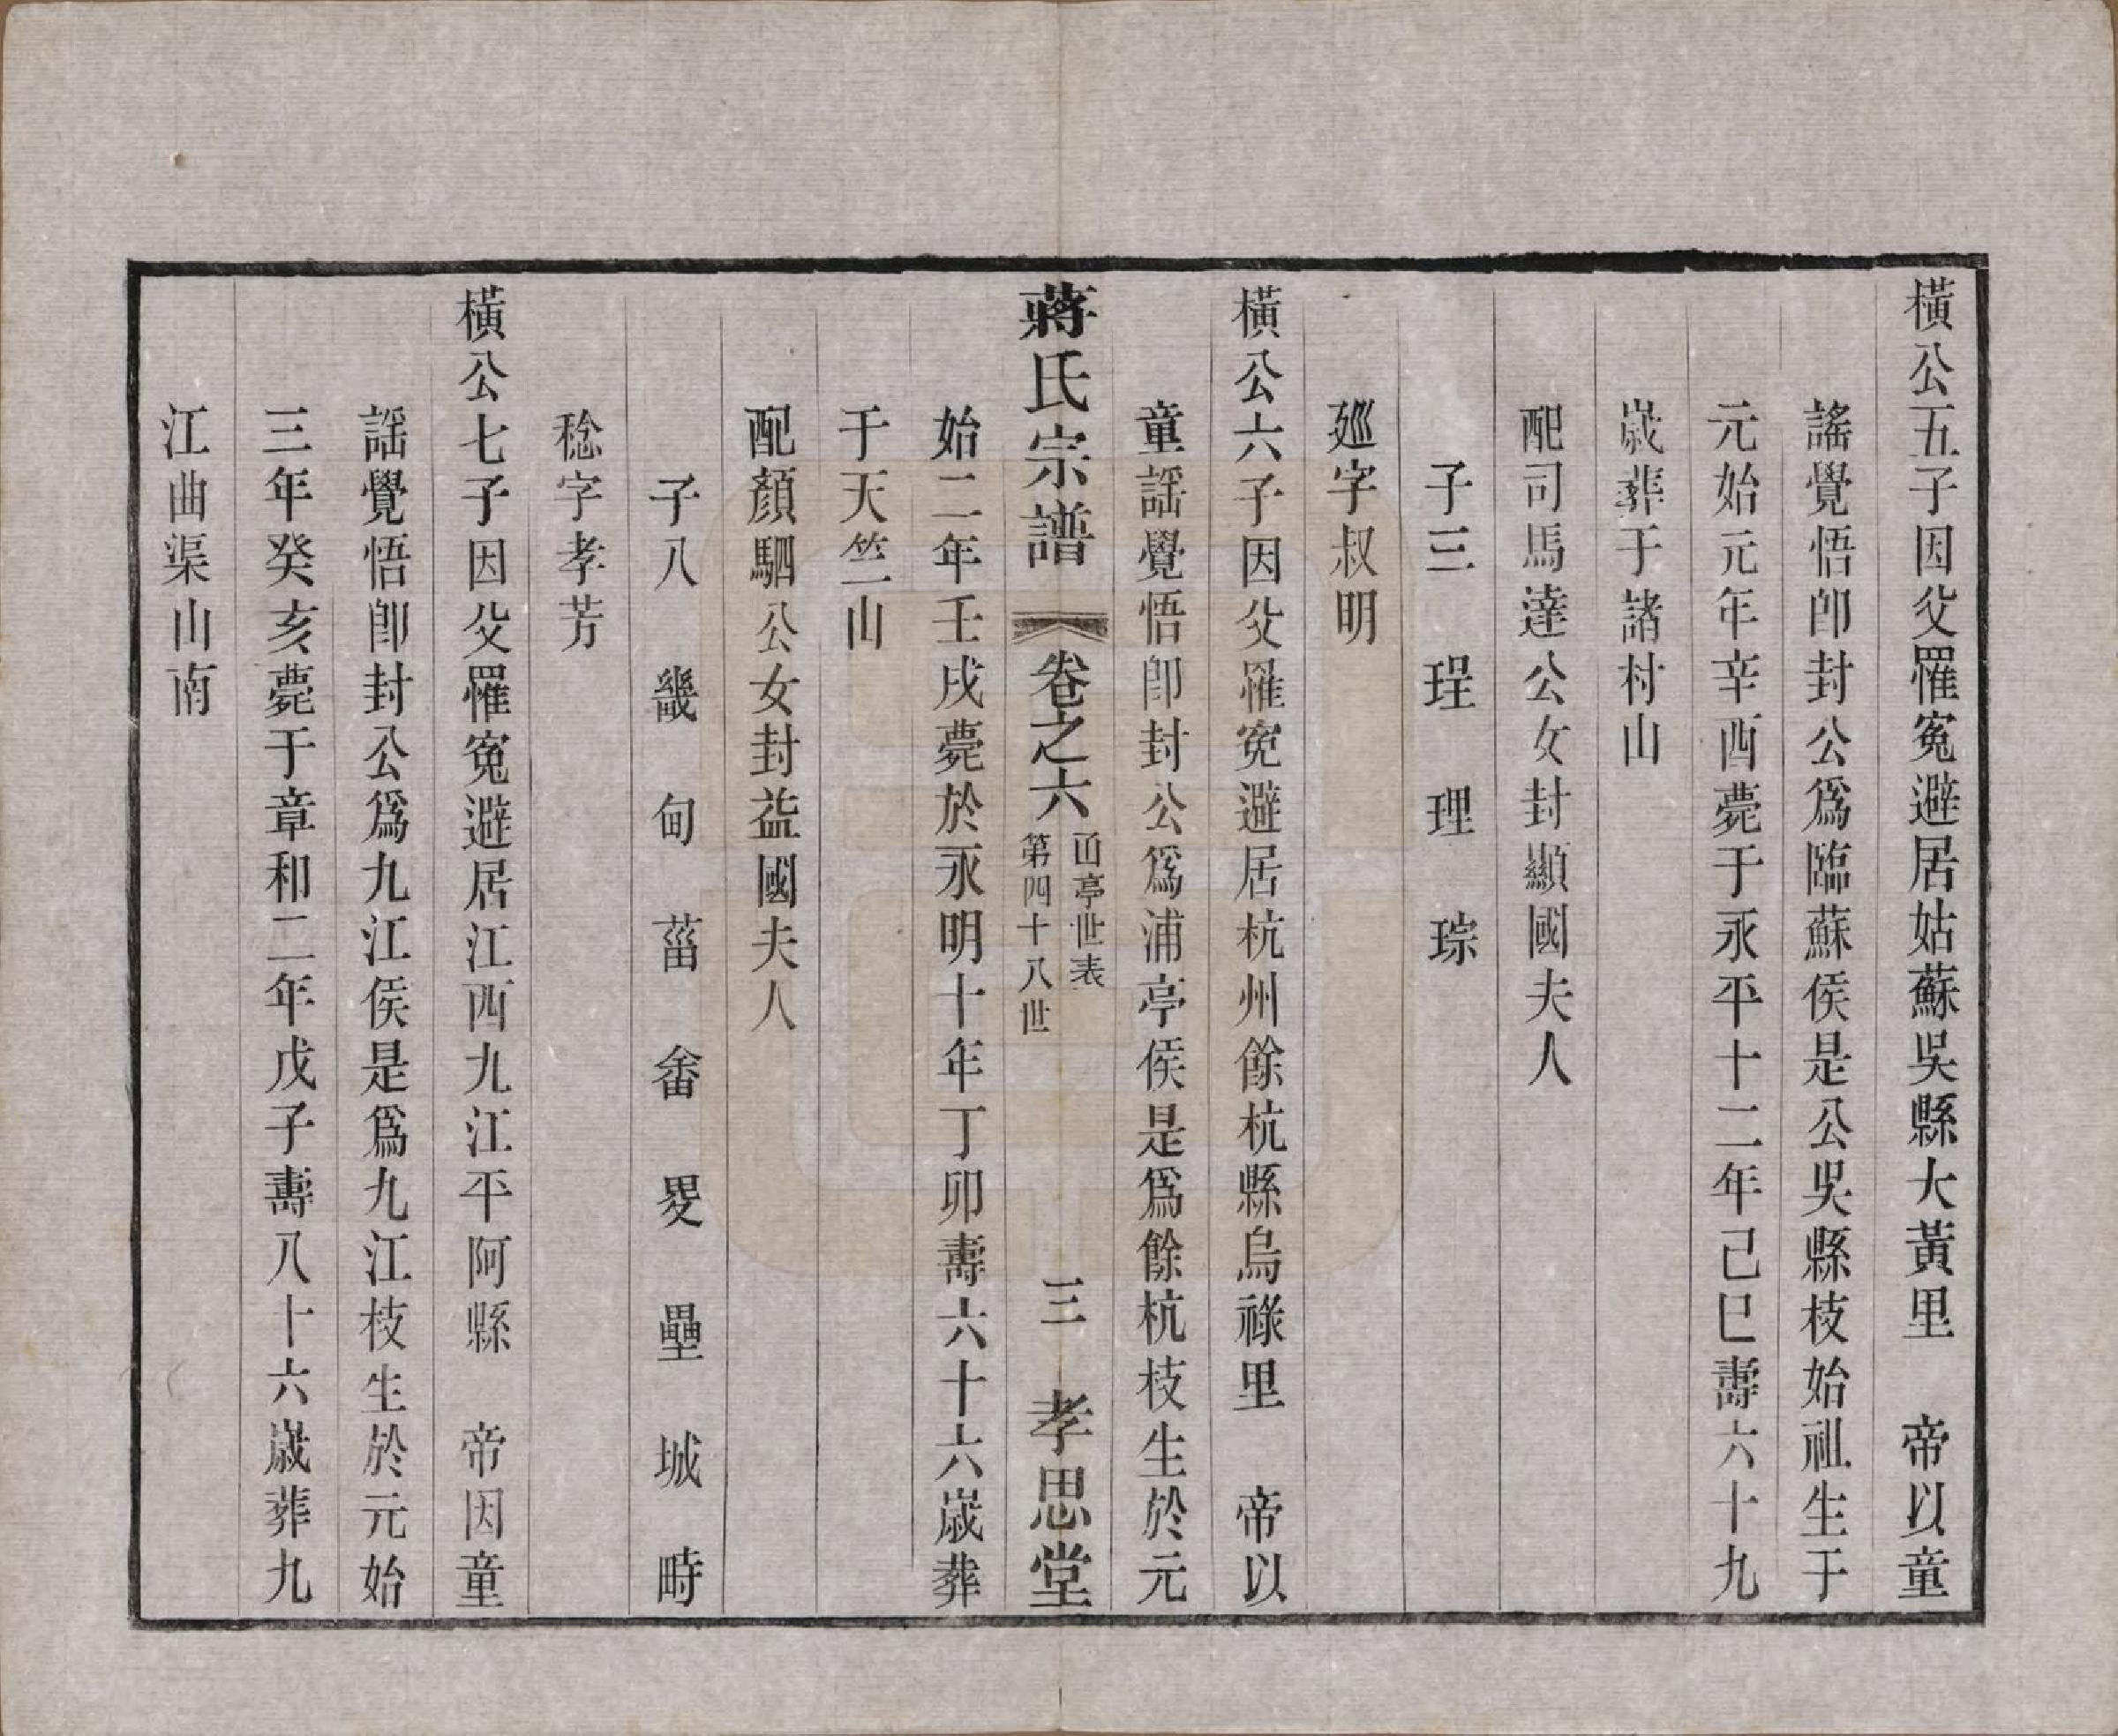 橫公五子因父罹寃避居姑蘇吳縣大黃里　帝以童
謠覺悟卽封公爲臨蘇侯是公吳縣枝始祖生于
元始元年辛酉薨于永平十二年己巳壽六十九
歲葬于諸村山
配司馬達公女封顯國夫人
子三　珵　理　琮
廵字叔明
橫公六子因父罹寃避居杭州餘杭縣烏祿里　帝以
童謠覺悟卽封公爲浦亭侯是爲餘杭枝生於元
始二年壬戌薨於永明十年丁卯壽六十六歲葬
于天竺山
配顏駟公女封益國夫人
子八　畿　甸　菑　畬　畟　壘　城　畤
稔字孝芳
橫公七子因父罹寃避居江西九江平阿縣　帝因童
謠覺悟卽封公爲九江侯是爲九江枝生於元始
三年癸亥薨于章和二年戊子壽八十六歲葬九
江曲渠山南
蔣氏宗譜　卷之六　㐭亭世表　第四十八世　三　孝思堂